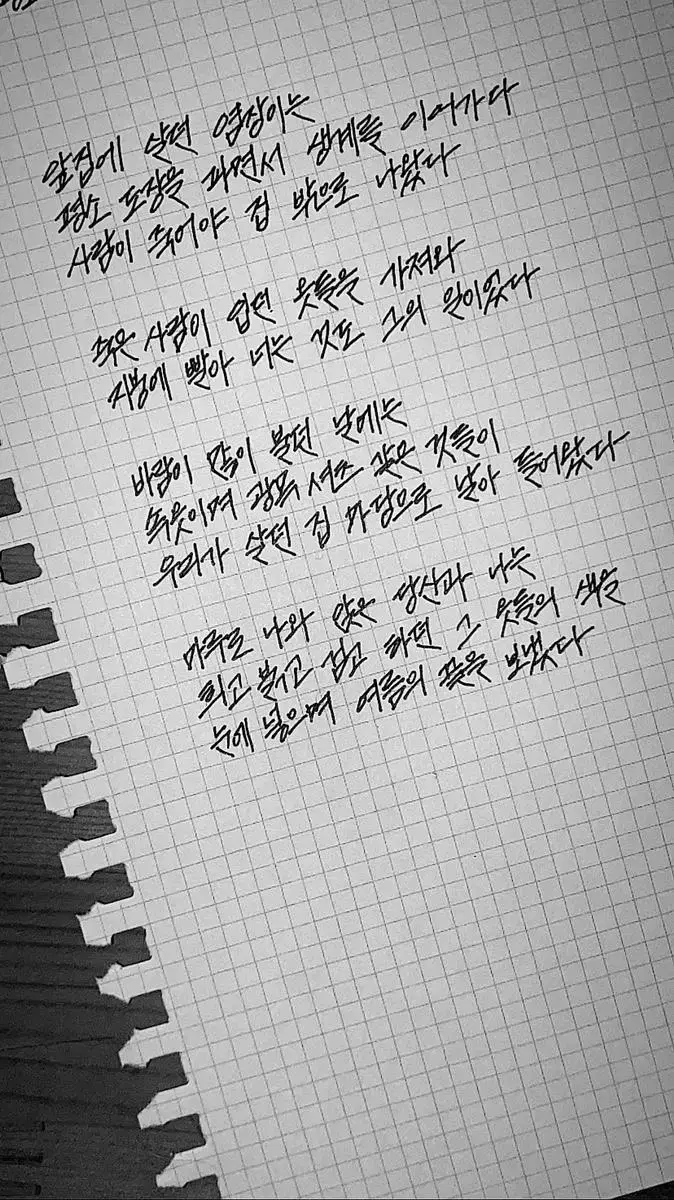 앞집에 살던 염장이는
평소 도장을 파면서 생계를 이어가다
사람이 죽어야 집 밖으로 나왔다
죽은 사람이 입던 옷들을 가져와
지붕에 빨아 너는 것도 그의 일이었다
바람이 많이 불던 날에는
속옷이며 광목 셔츠 같은 것들이
우리가 살던 집 마당으로 날아 들어왔다
마루로 나와 앉은 당신과 나는
희고 붉고 검고 하던 그 옷들의 색을
눈에 넣으며 여름의 끝을 보냈다